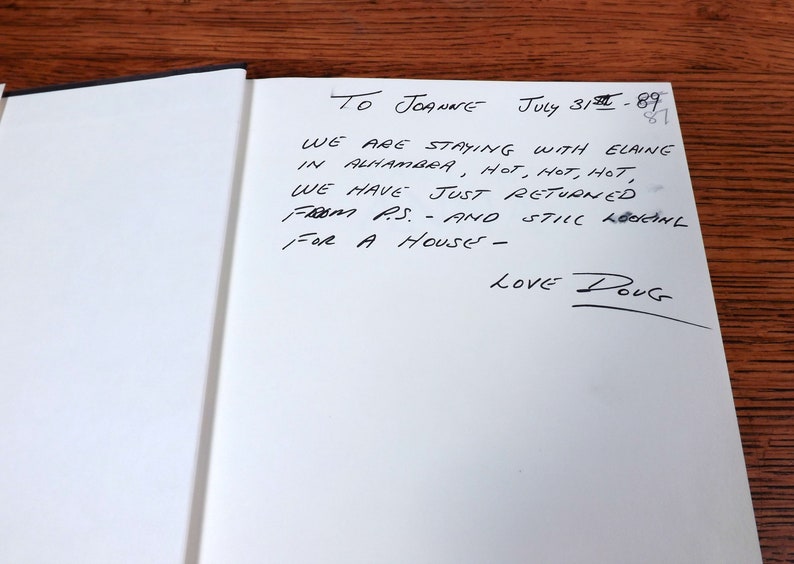 TO JOANNE JULY 31ST - 89
87
WE ARE STAYING WITH ELAINE
IN ALHAMBRA, HOT, HOT, HOT,
WE HAVE JUST RETURNED
FROM P.S. - AND STILL LOOKING
FOR A HOUSE -
LOVE DOUG